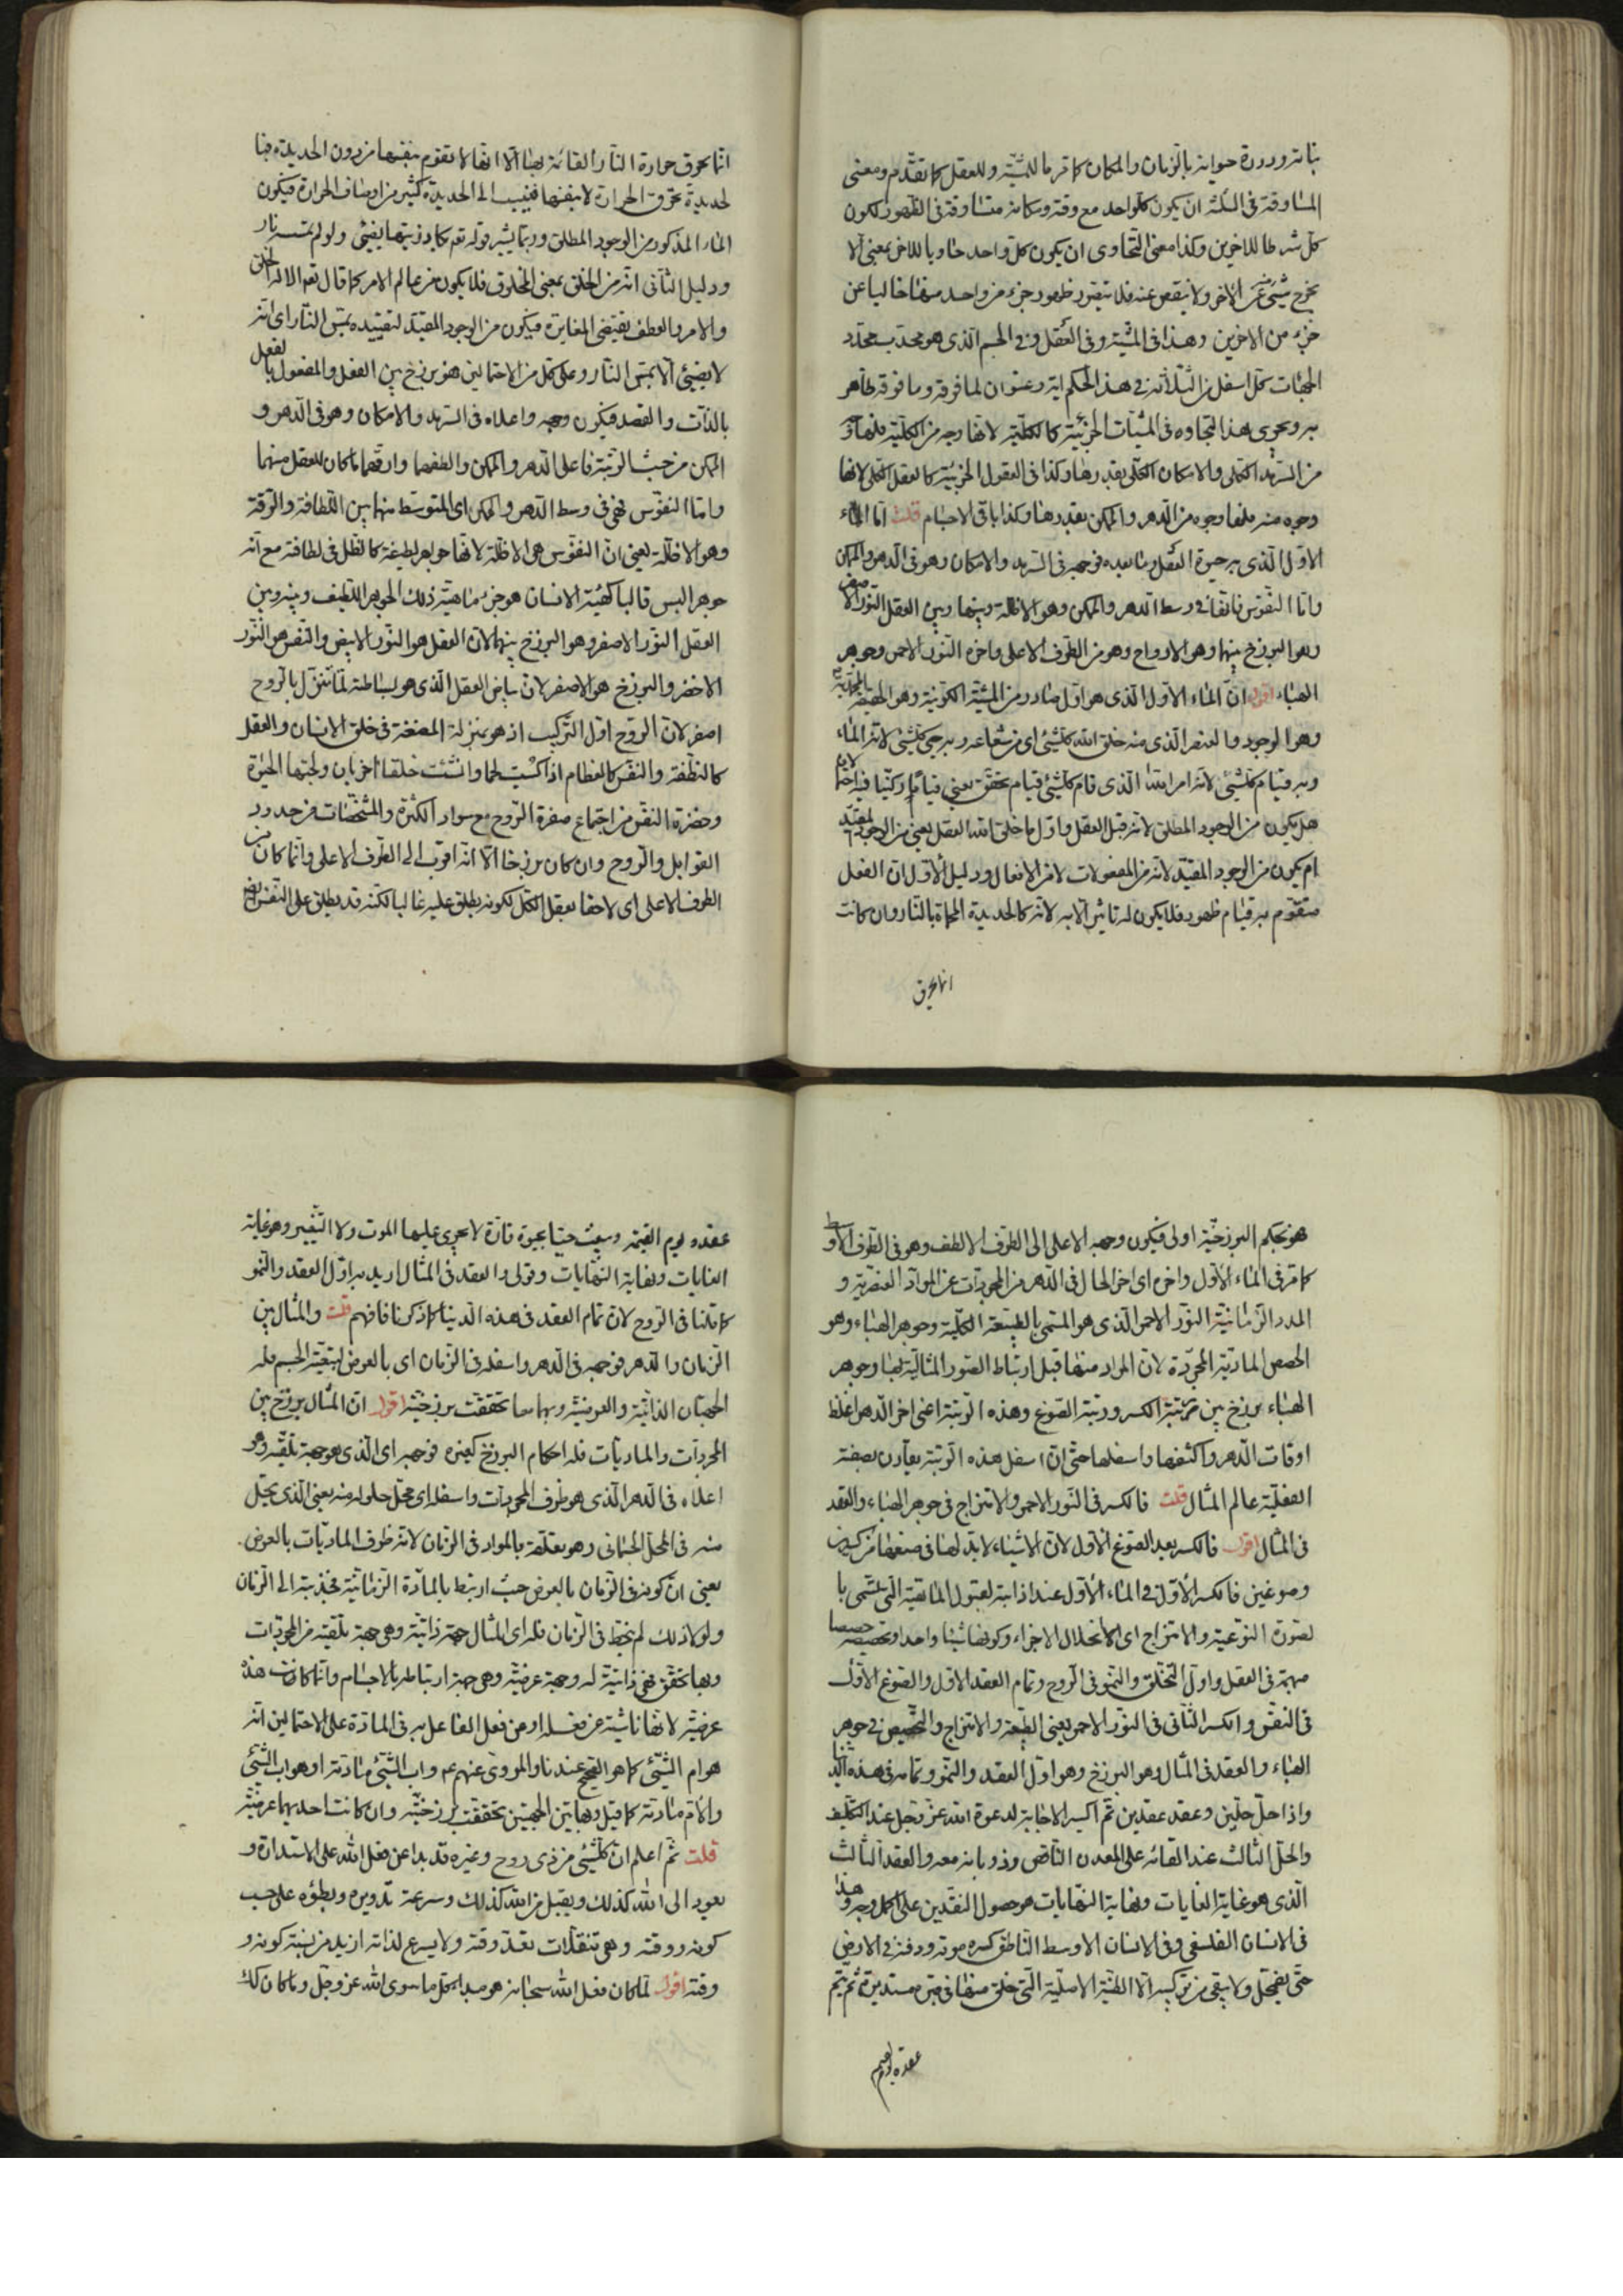 بذاته ودورة حواية بالزمان والمكان كما مر ما للمشية وللعقل كما تقدم ومعنى
المساوقة فى الثلثة ان يكون كل واحد مع وقته ومكانه متساوقة فى الظهور لكون
كل شرطا للاخرين وكذا معنى التحاوى ان يكون كل واحد حاويا للاخر بمعنى الا
يخرج شيئ عن الاخر ولا ينقص عنه فلا يتصور ظهور جزء من واحد منها خاليا عن
جزء من الاخرين وهذا فى المشية وفى العقل وفى الجسم الذى هو محدب محدد
الجهات كل اسفل من الثلاثة فى هذا الحكم اية وعنوان لما فوقه وما فوقه ظاهر
به ويجرى هذا التجاوه فى المشيات الجزئية كالكلية لانها وجه من الكلية فلها
من السرمد الكلى والامكان الكلى بقدرها وكذا فى العقول الجزئية كالعقل الكلى لانها
وجوه منه فلها وجوه من الدهر والممكن بقدرها وكذا باقى الاجسام قلت اما الماء
الاول الذى به حيوة العقل وما بعده فوجهه فى السرمد والامكان وهو فى الدهر والممكن
واما النفوس فانها فى وسط الدهر والممكن وهو الاظلة وبينها وبين العقل النور الاصفر
وهو البرزخ بينهما وهو الارواح وهو من الطرف الاعلى واخره النور الاحمر وجوهر
الهباء اقول ان الماء الاول الذى هو اول صادر من المشية الكونية وهو الحقيقة المحمدية
وهو الوجود والعنصر الذى منه خلق الله كل شيئ اى من شعاعه وبه حيى كل شيئ لانه الماء
وبه قيام كل شيئ لانه امر الله الذى قام كل شيئ قيام تحقق يعنى قياما ركنيا فيه احتمالان
هل يكون من الوجود المطلق لانه قبل العقل واول ما خلق الله العقل يعنى من الوجود المقيد
ام يكون من الوجود المقيد لانه من المفعولات لا من الافعال ودليل الاول ان الفعل
متقوم به قيام ظهور فلا يكون له تاثير الا به لانه كالحديدة المحماة بالنار وان كانت
انما يحرق
انما يحرق حرارة النار القائمة بها الا انها لا تقوم بنفسها من دون الحديدة فا
لحديدة تحرق الحرارة لا بنفسها فينسب الى الحديدة كثير من اوصاف الحرارة فيكون
الماء المذكور من الوجود المطلق وربما يشير قوله تعم يكاد زيتها يضيئ ولو لم تمسسه نار
ودليل الثانى انه من الخلق بمعنى المخلوق فلا يكون من عالم الامر كما قال تعم الا له الخلق
والامر والعطف يقتضى المغايرة فيكون من الوجود المقيد لتقييده بمس النار اى انه
لا يضيئ الا بمس النار وعلى كل من الاحتمالين هو برزخ بين الفعل والمفعول بالفعل
بالذات والقصد فيكون وجهه واعلاه فى السرمد والامكان وهو فى الدهر و
الممكن من حيث الرتبة فاعلى الدهر والممكن والطفهما وارقهما ما كان للعقل منهما
واما النفوس فهى فى وسط الدهر والممكن اى المتوسط منهما بين اللطافة والرقة
وهو الاظلة يعنى ان النفوس هى الاظلة لانها جواهر لطيفة كالظل فى لطافته مع انه
جوهر البس قالبا كهيئة الانسان هو جزء ماهية ذلك الجوهر اللطيف وبينه وبين
العقل النور الاصفر وهو البرزخ بينهما لان العقل هو النور الابيض والنفس هو النور
الاخضر والبرزخ هو الاصفر لان بياض العقل الذى هو بساطته لما تنزل بالروح
اصفر لان الروح اول التركيب اذ هو بمنزلة المضغة فى خلق الانسان والعقل
كالنطفة والنفس كالعظام اذا كسيت لحما وانشئت خلقا اخر بان ولجتها الحيوة
وخضرة النفس من اجتماع صفرة الروح مع سواد الكثرة والمشخصات من حدود
القوابل والروح وان كان برزخا الا انه اقرب الى الطرف الاعلى وانما كان من
الطرف الاعلى اى لاحقا بعقل الكل لكونه يطلق عليه غالبا لكنه قد يطلق على النفس
هو بحكم البرزخية اولى فيكون وجهه الاعلى الى الطرف الالطف وهو فى الطرف الاوسط
كما مر فى الماء الاول واخره اى اخر الحال فى الدهر من المجردات عن المواد العنصرية و
المدد الزمانية النور الاحمر الذى هو المسمى بالطبيعة الكلية وجوهر الهباء وهو
الحصص المادية المجردة لان المراد منها قبل ارتباط الصور المثالية بها وجوهر
الهباء برزخ بين مرتبة الكسر ورتبة الصوغ وهذه الرتبة اعنى اخر الدهر اغلظ
اوقات الدهر واكثفها واسفلها حتى ان اسفل هذه الرتبة يعادن بصفته
الفعلية عالم المثال قلت فالكسر فى النور الاحمر والامتزاج فى جوهر الهباء والعقد
فى المثال اقول فالكسر بعد الصوغ الاول لان الاشياء لا بد لها فى صنعها من كسرين
وصوغين فالكسر الاول فى الماء الاول عند اذابته لقبول الماهية التى تسمى با
لصورة النوعية والامتزاج اى الانحلال الاجزاء وكونها شيئا واحدا وتحصيصه حصصا
مبهمة فى العقل واول التخلق والنمو فى الروح وتمام العقد الاول والصوغ الاول
فى النفس والكسر الثانى فى النور الاحمر يعنى الطبيعة والامتزاج والتحصيص فى جوهر
الهباء والعقد فى المثال وهو البرزخ وهو اول العقد والنمو وتمامه فى هذه الدنيا
واذا حل حلين وعقد عقدين تم اكسير الاجابة لدعوة الله عز وجل عند التكليف
والحل الثالث عند القائه على المعدن الناقص وذوبانه معه والعقد الثالث
الذى هو غاية الغايات ونهاية النهايات هو حصول النقدين على اكمل وجه وهذا
فى الانسان الفلسفى وفى الانسان الاوسط الناطق كسره موته ودفنه فى الارض
حتى يضمحل ولا يبقى من تركيبه الا الطينة الاصلية التى خلق منها فى قبره مستديرة ثم يتم
عقده يوم
عقده يوم القيمة ويبعث حيا بحيوة قارة لا يجرى عليها الموت ولا التغيير وهو غاية
الغايات ونهاية النهايات وقولى والعقد فى المثال اريد به اول العقد والنمو
كما قلنا فى الروح لان تمام العقد فى هذه الدنيا كما ذكرنا فافهم قلت والمثال بين
الزمان والدهر فوجهه فى الدهر واسفله فى الزمان اى بالعرض لتبعية الجسم فله
الجهتان الذاتية والعرضية وبهما معا تحققت برزخيته اقول ان المثال برزخ بين
المجردات والماديات فله احكام البرزخ كغيره فوجهه اى الذى هو جهة تلقيه وهو
اعلاه فى الدهر الذى هو ظرف المجردات واسفله اى محل حلوله منه يعنى الذى يحل
منه فى المحل الجسمانى وهو تعلقه بالمواد فى الزمان لانه ظرف الماديات بالعرض.
يعنى ان كونه فى الزمان بالعرض حيث ارتبط بالمادة الزمانية فجذبته الى الزمان
ولولا ذلك لم ينحط فى الزمان فله اى المثال جهة ذاتية وهى جهة تلقيه من المجردات
وبها تحقق فهى ذاتية له وجهة عرضية وهى جهة ارتباطه بالاجسام وانما كانت هذه
عرضية لانها ناشية عن فعله او من فعل الفاعل به فى المادة على الاحتمالين انه
هو ام الشيئ كما هو الصحيح عندنا والمروى عنهم ع م واب الشيئ مادته او هو اب الشيئ
والام مادته كما قيل وبهاتين الجهتين تحققت برزخيته وان كانت احديهما عرضية
قلت ثم اعلم ان كل شيئ من ذى روح وغيره قد بدا عن فعل الله على الاستدارة و
يعود الى الله كذلك ويقبل من الله كذلك وسرعة تدويره وبطؤه على حسب
كونه ووقته وهى تنقلات بعد وقته ولا يسرع لذاته ازيد من نسبة كونه و
وقته اقول لما كان فعل الله سبحانه هو مبدا كل ما سوى الله عز وجل وما كان كك